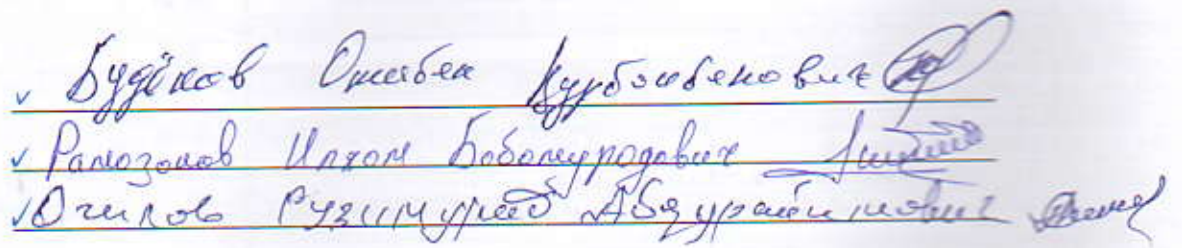 Будёнов Ошбек Қурбонбекович
Рамозонов Илхом Бобомуродович
Очилов Рузимурод Абдураимович